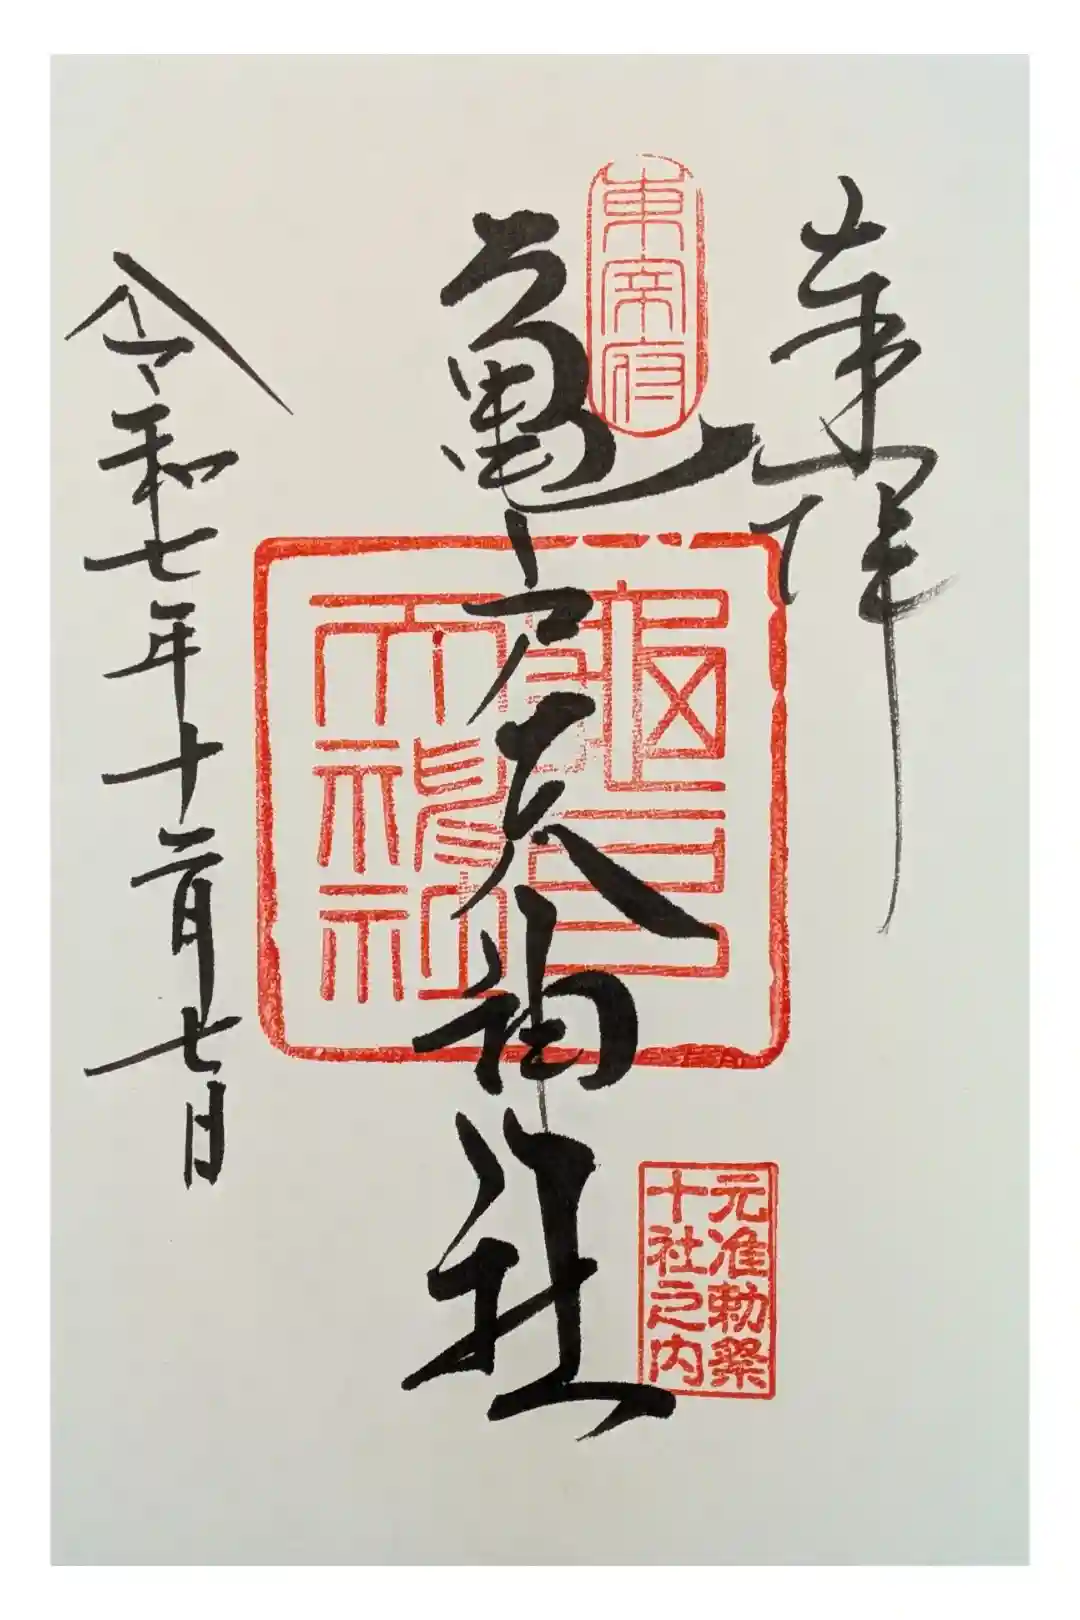 奉拝
東宰府
亀戸天神社
亀戸天神社
元准勅祭
十社之内
令和七年十二月七日